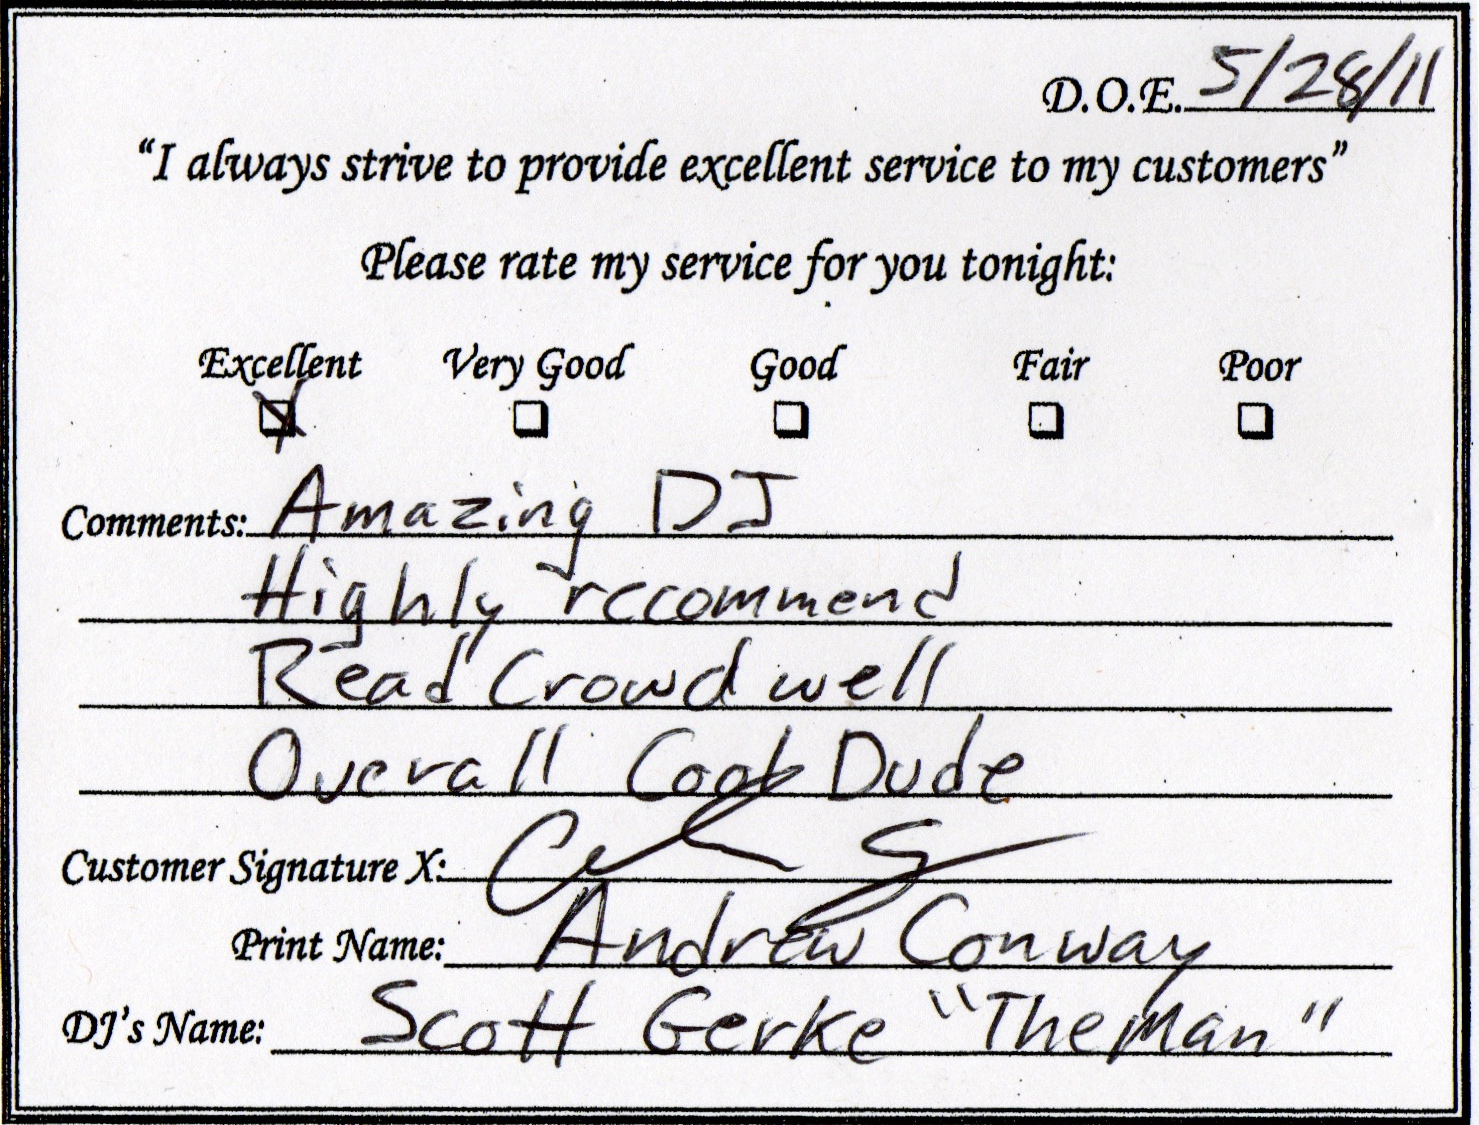 D.O.E. 5/28/11
"I always strive to provide excellent service to my customers"
Please rate my service for you tonight:
Excellent Very Good Good Fair Poor
Comments: Amazing DJ
Highly recommend
Read Crowd well
Overall Cool Dude
Customer Signature X:
Print Name: Andrew Conway
DJ's Name: Scott Gerke "The Man"